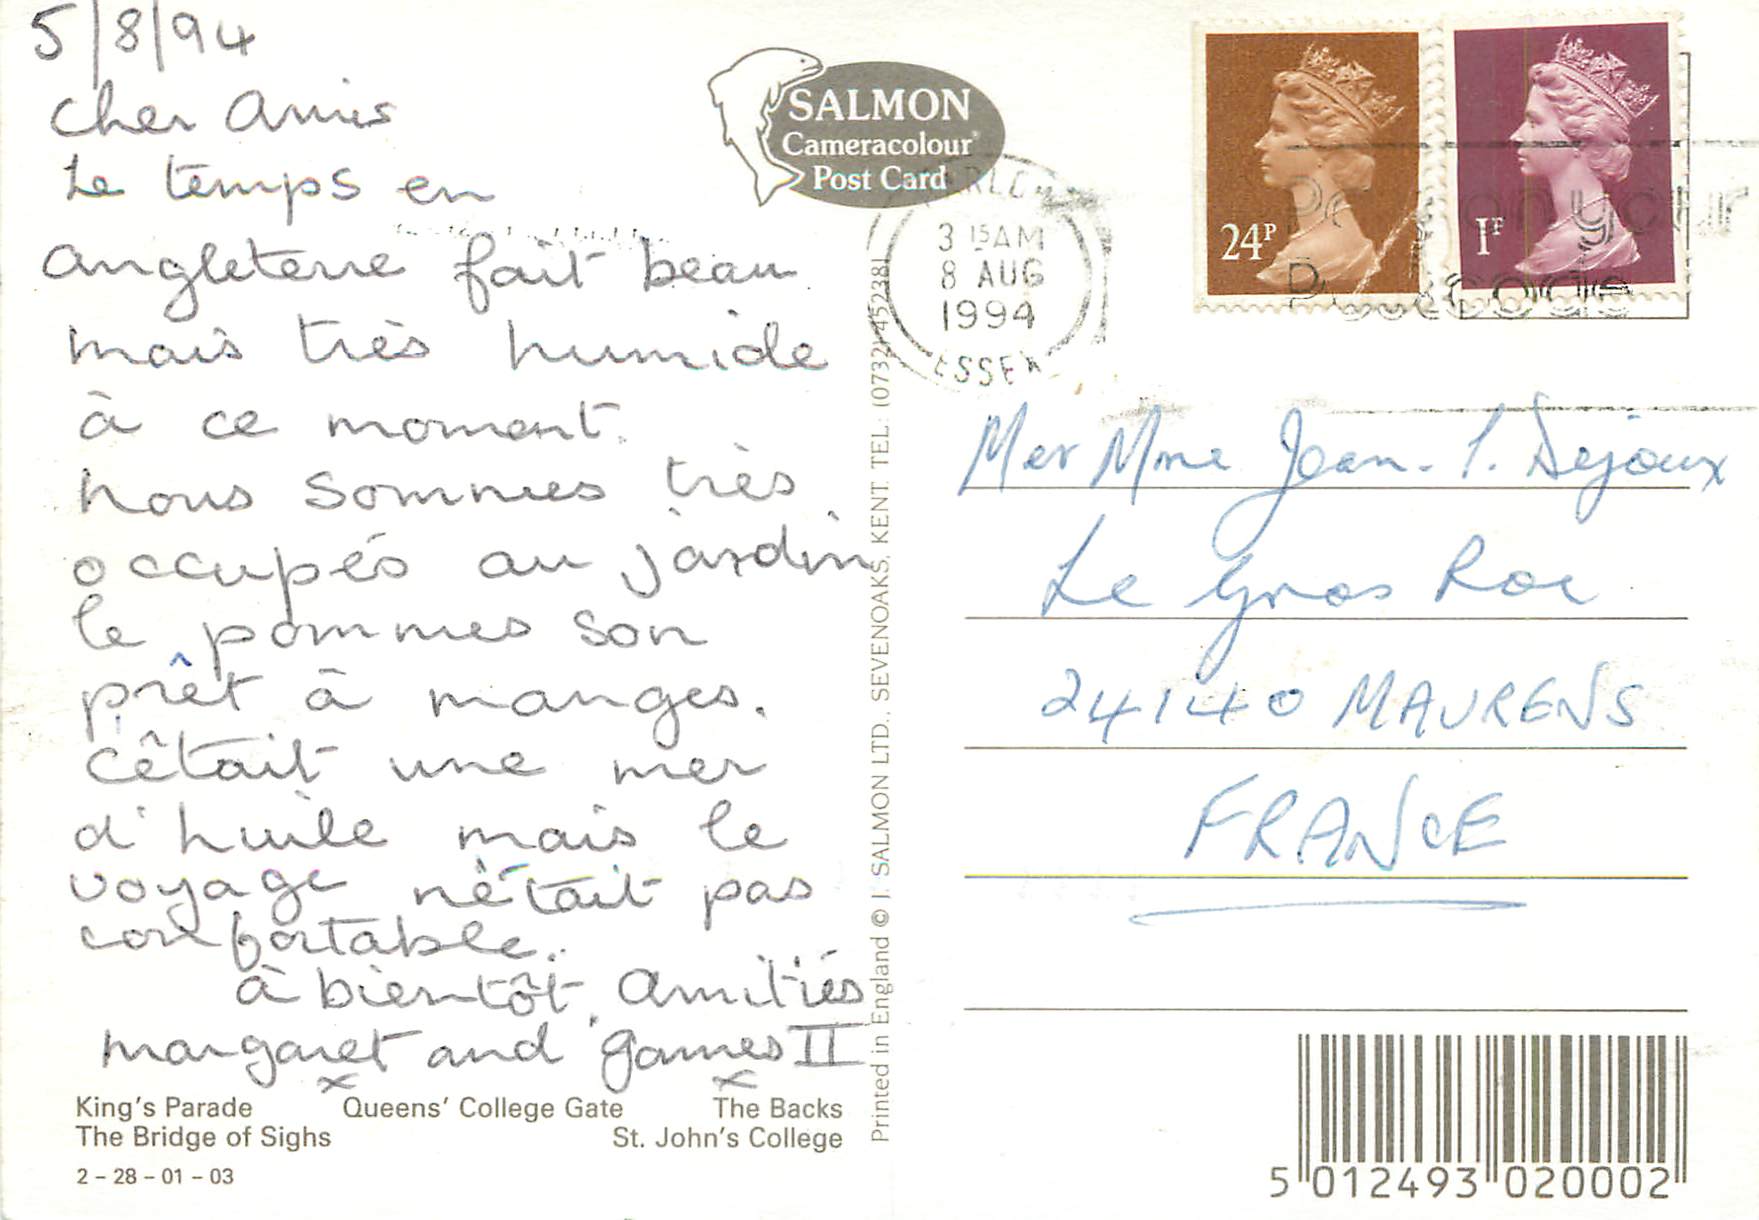 5/8/94
Cher Amis
Le temps en
angleterre fait beau
mais très humide
à ce moment.
nous sommes très
occupés au jardin
le pommes son
prêt à manges.
c'êtait une mer
d'huile mais le
voyage n'était pas
confortable.
à bientôt. Amitiés
margaret and James II
x x
King's Parade Queens' College Gate The Backs
The Bridge of Sighs St. John's College
2 – 28 – 01 – 03
SALMON
Cameracolour
Post Card
Printed in England © J. SALMON LTD., SEVENOAKS, KENT. TEL: (0732) 452381
3 15AM
8 AUG
1994
ESSEX
24P
1P
Postcode
M et Mme Jean-P. Dejoux
Le Gros Roc
24140 MAURENS
FRANCE
5 012493 020002